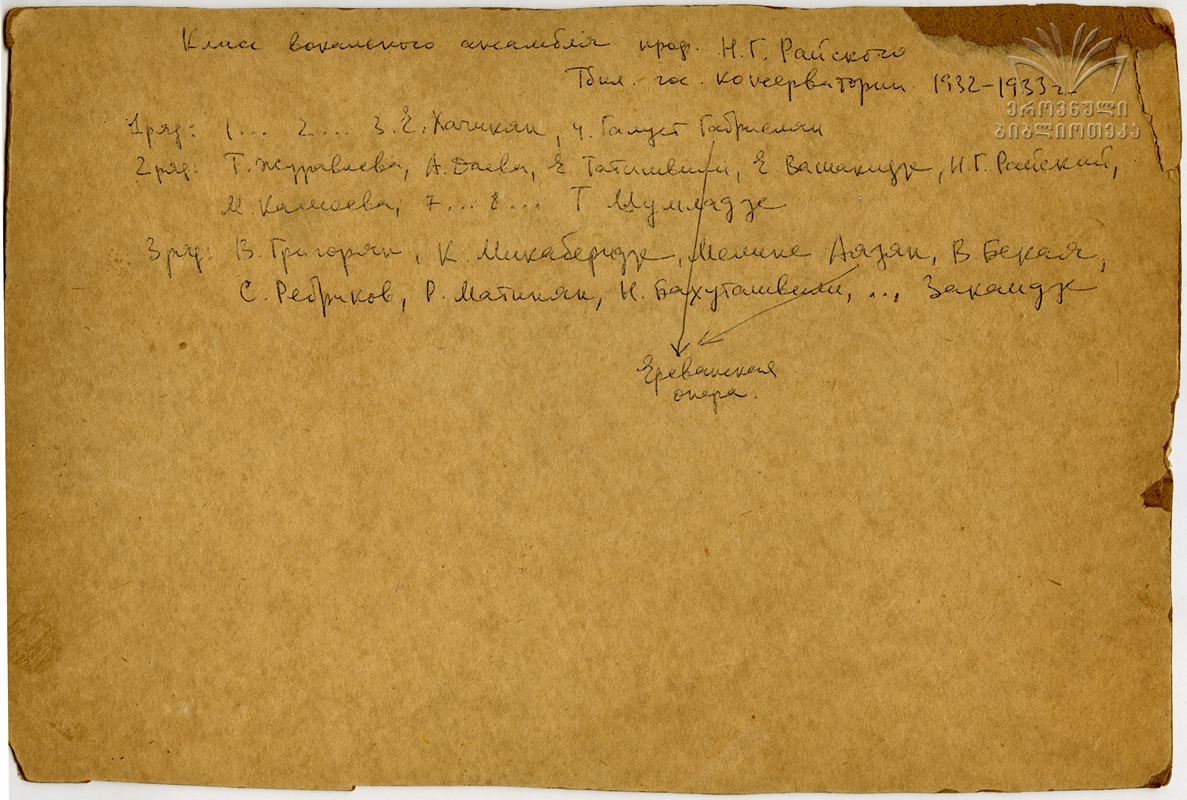 Класс вокального ансамбля проф. Н.Г. Райского
Тбил. гос. консерватории 1932–1933 г.
ეროვნული
ბიბლიოთეკა
1 ряд: 1... 2... 3. Е. Хачикян, 4. Галуст Габриелян
2 ряд: Т. Журавлева, А. Даева, Е Татишвили, Е Вашакидзе, Н.Г. Райский,
М. Калоева, 7... 8... Т Мумладзе
3 ряд: В. Григорян, К. Микаберидзе, Мелине Аязян, В Бекая,
С. Ребриков, Р. Матинян, Н. Бахуташвили, ..., Закаидзе
Ереванская
опера.